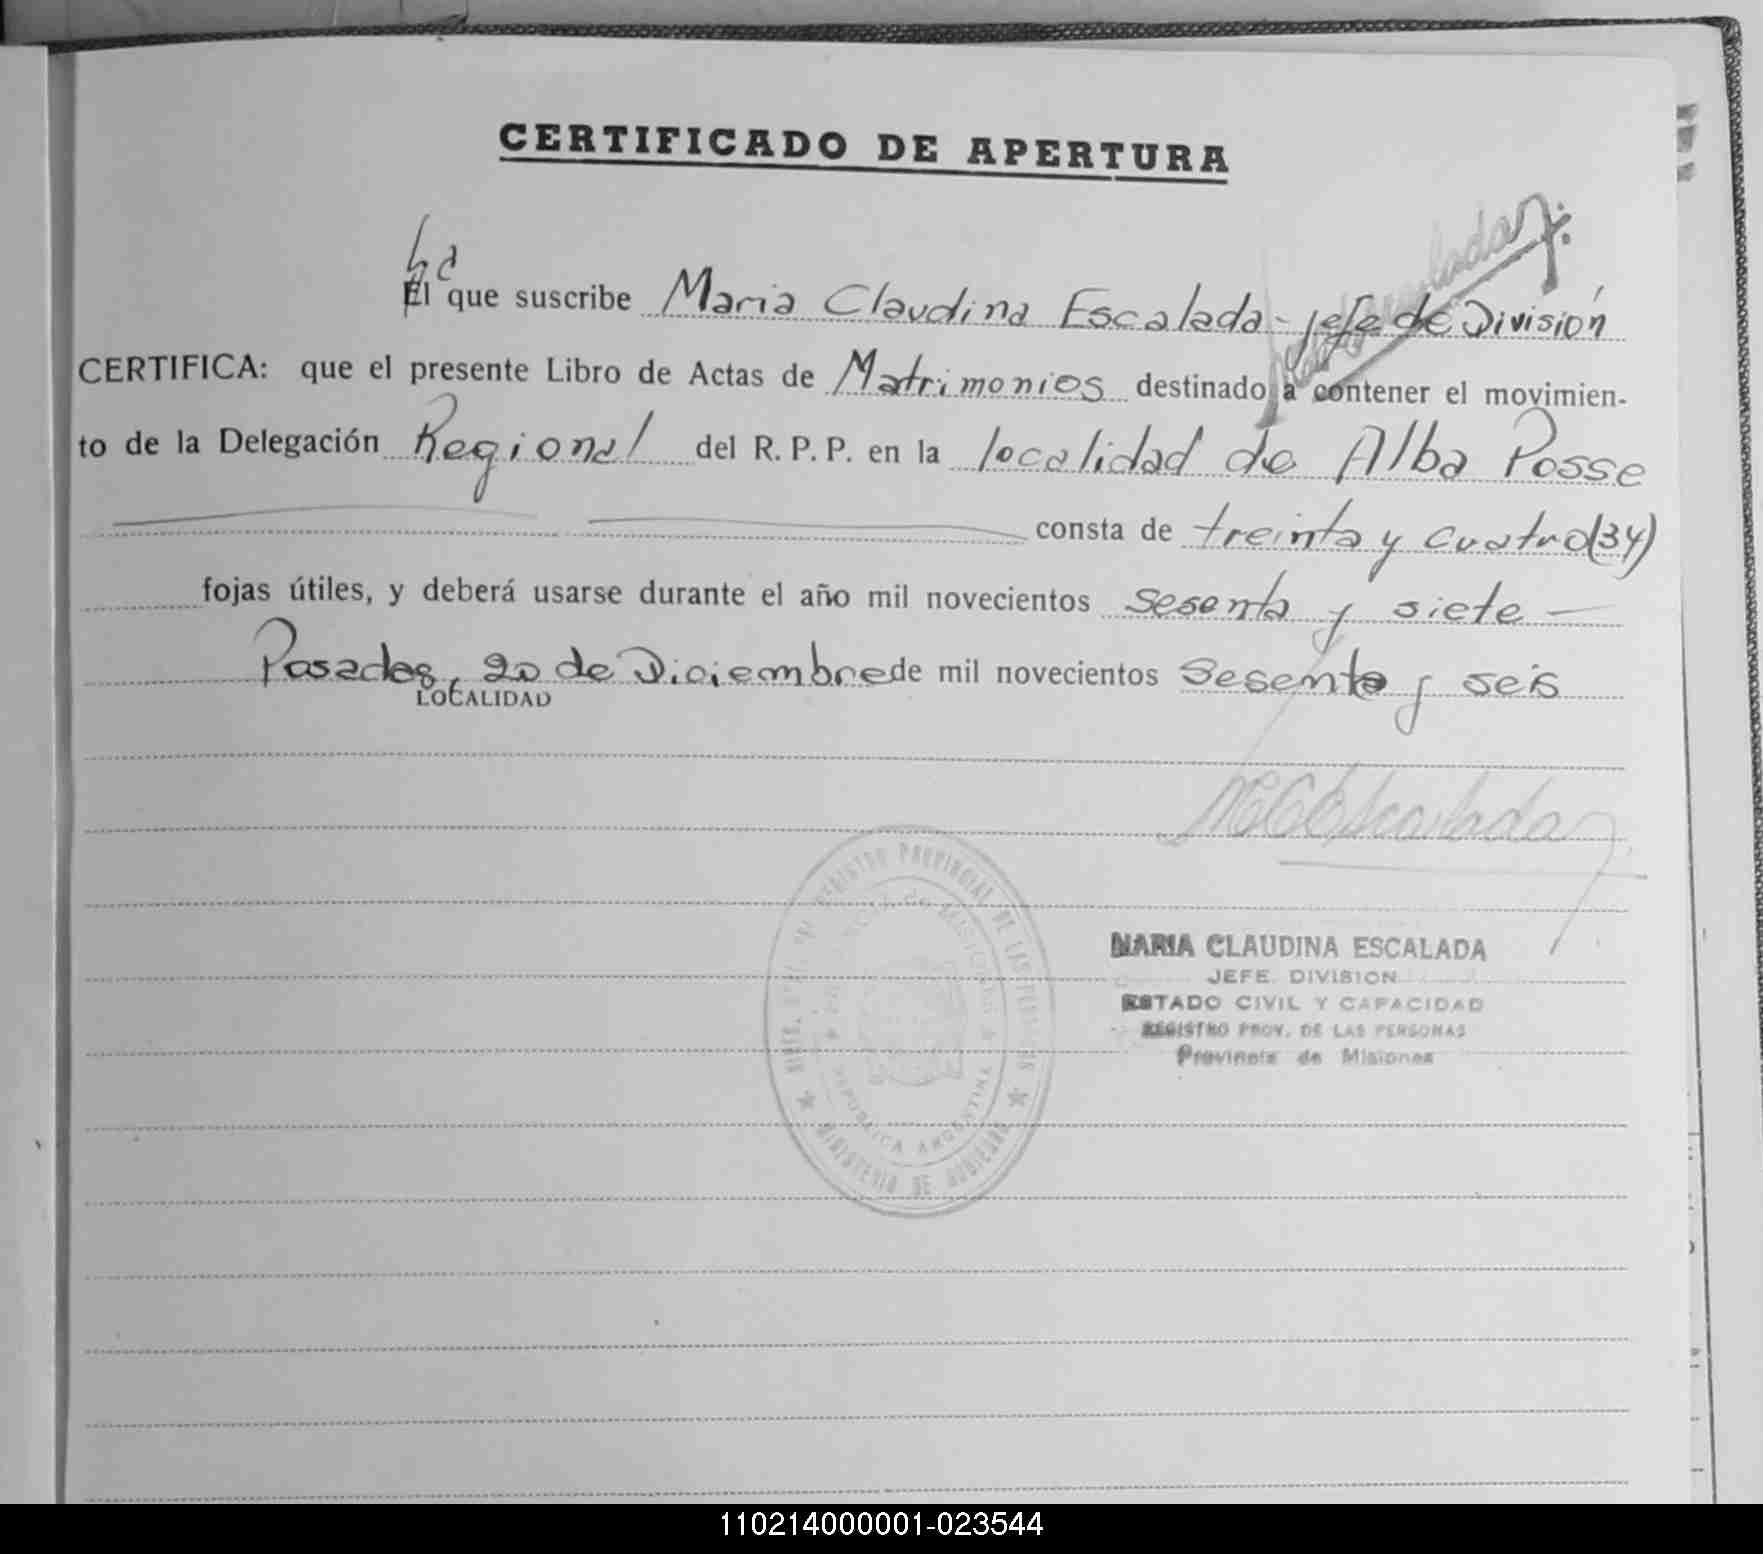 CERTIFICADO DE APERTURA
La
El que suscribe Maria Claudina Escalada - jefe de División
CERTIFICA: que el presente Libro de Actas de Matrimonios destinado a contener el movimien-
to de la Delegación Regional del R. P. P. en la localidad de Alba Posse
consta de treinta y cuatro (34)
fojas útiles, y deberá usarse durante el año mil novecientos sesenta y siete —
Posadas, 20 de Diciembre de mil novecientos sesenta y seis
LOCALIDAD
MCEscalada
REGISTRO PROVINCIAL DE LAS PERSONAS
MINISTERIO DE GOBIERNO
PROVINCIA DE MISIONES
REPUBLICA ARGENTINA
MARIA CLAUDINA ESCALADA
JEFE DIVISION
ESTADO CIVIL Y CAPACIDAD
REGISTRO PROV. DE LAS PERSONAS
Provincia de Misiones
110214000001-023544